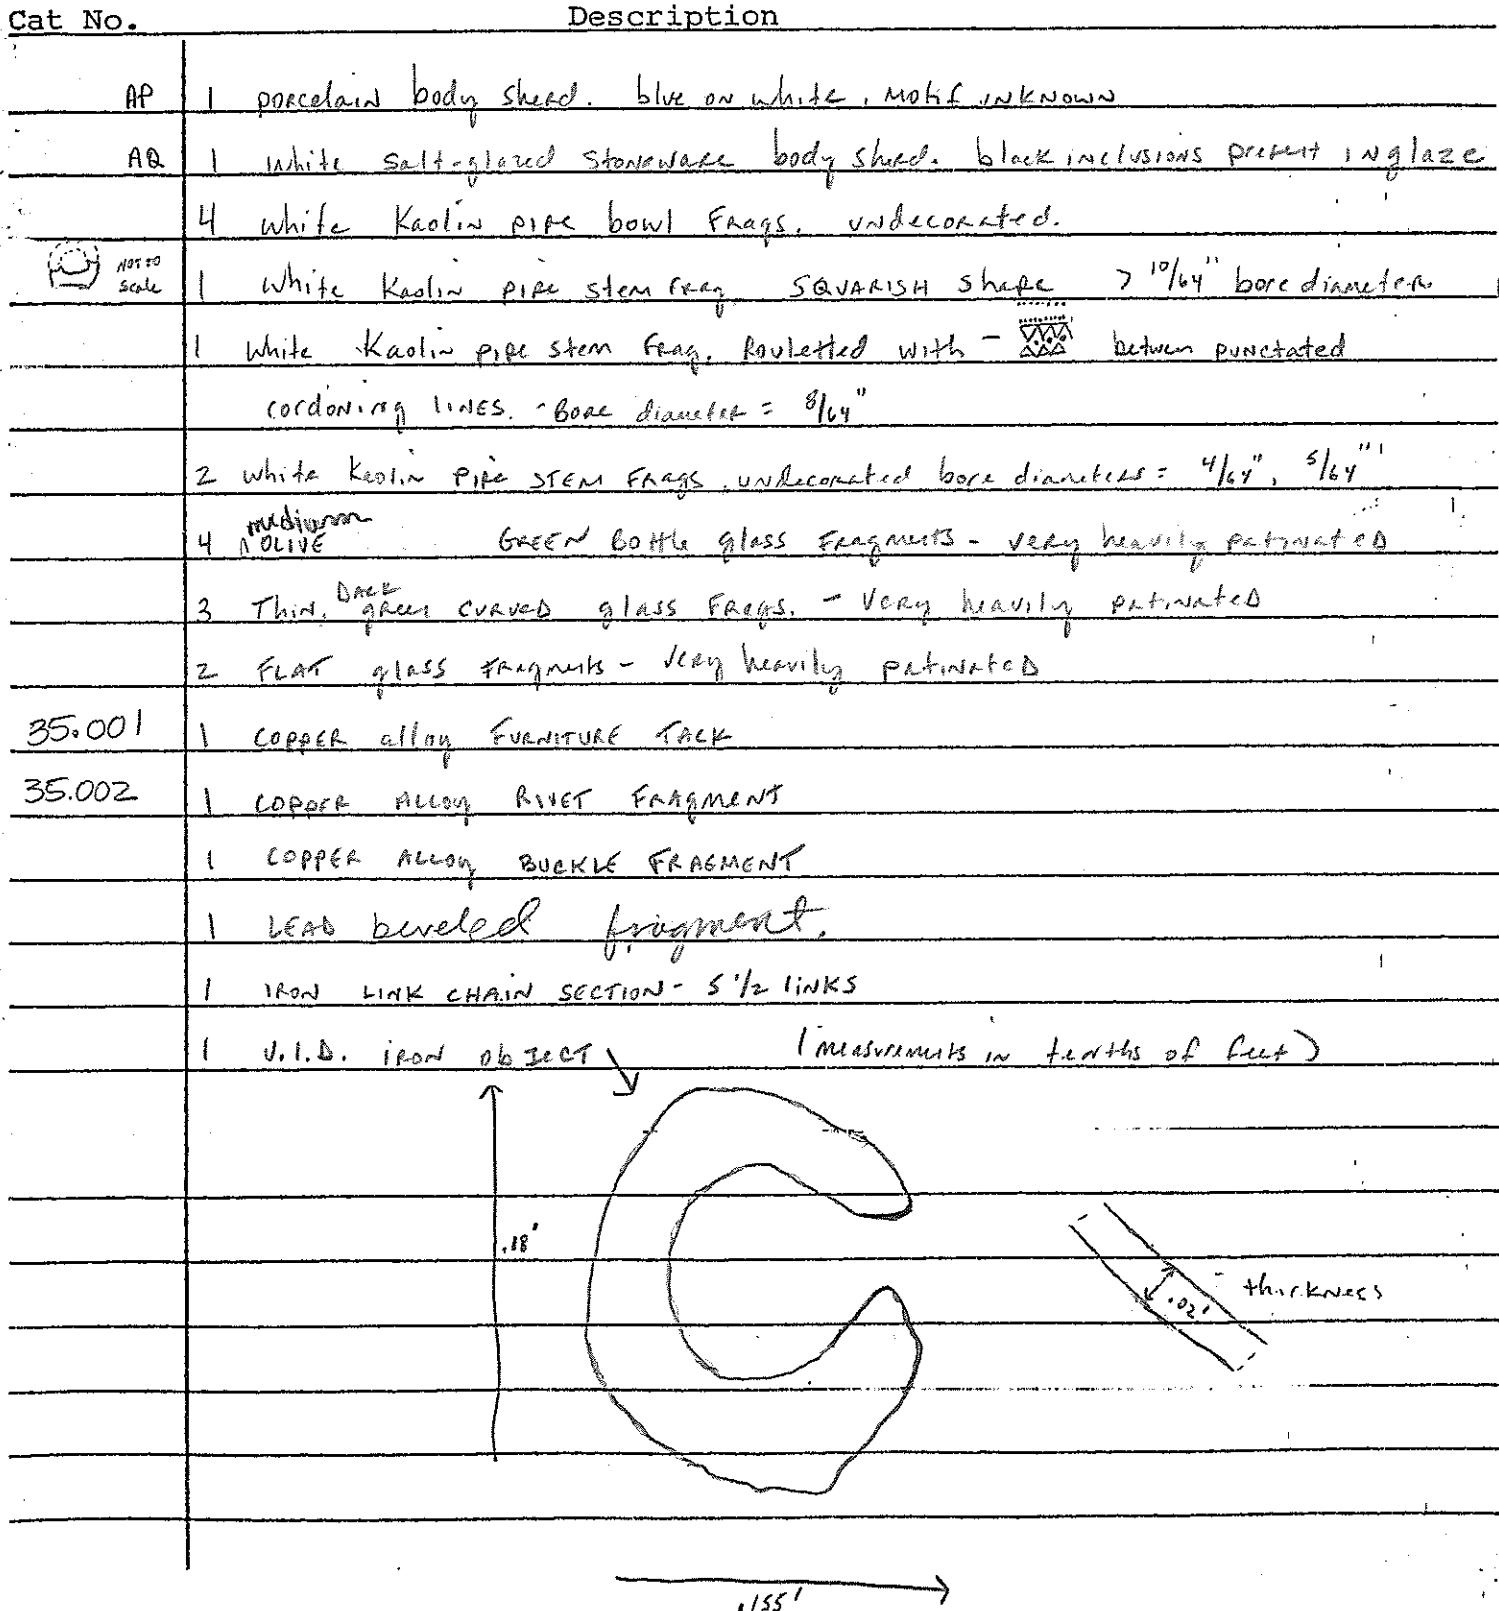 Cat No. Description
AP 1 porcelain body sherd. blue on white, motif unknown
AQ 1 white salt-glazed stoneware body sherd. black inclusions present in glaze
4 white Kaolin pipe bowl frags. undecorated.
NOT TO Scale 1 white Kaolin pipe stem frag SQUARISH shape > 10/64" bore diameter
1 white Kaolin pipe stem frag. Rouletted with - between punctated
cordoning lines. - Bore diameter = 8/64"
2 white Kaolin pipe STEM frags. undecorated bore diameters = 4/64", 5/64"
4 medium OLIVE GREEN Bottle glass fragments - very heavily patinated
3 Thin, Dark green curved glass frags. - Very heavily patinated
2 FLAT glass fragments - very heavily patinated
35.001 1 COPPER alloy FURNITURE TACK
35.002 1 COPPER ALLOY RIVET FRAGMENT
1 COPPER ALLOY BUCKLE FRAGMENT
1 LEAD beveled fragment.
1 IRON LINK CHAIN SECTION - 5 1/2 links
1 U.I.D. iron object (measurements in tenths of feet)
.18'
.02' - thickness
.155'